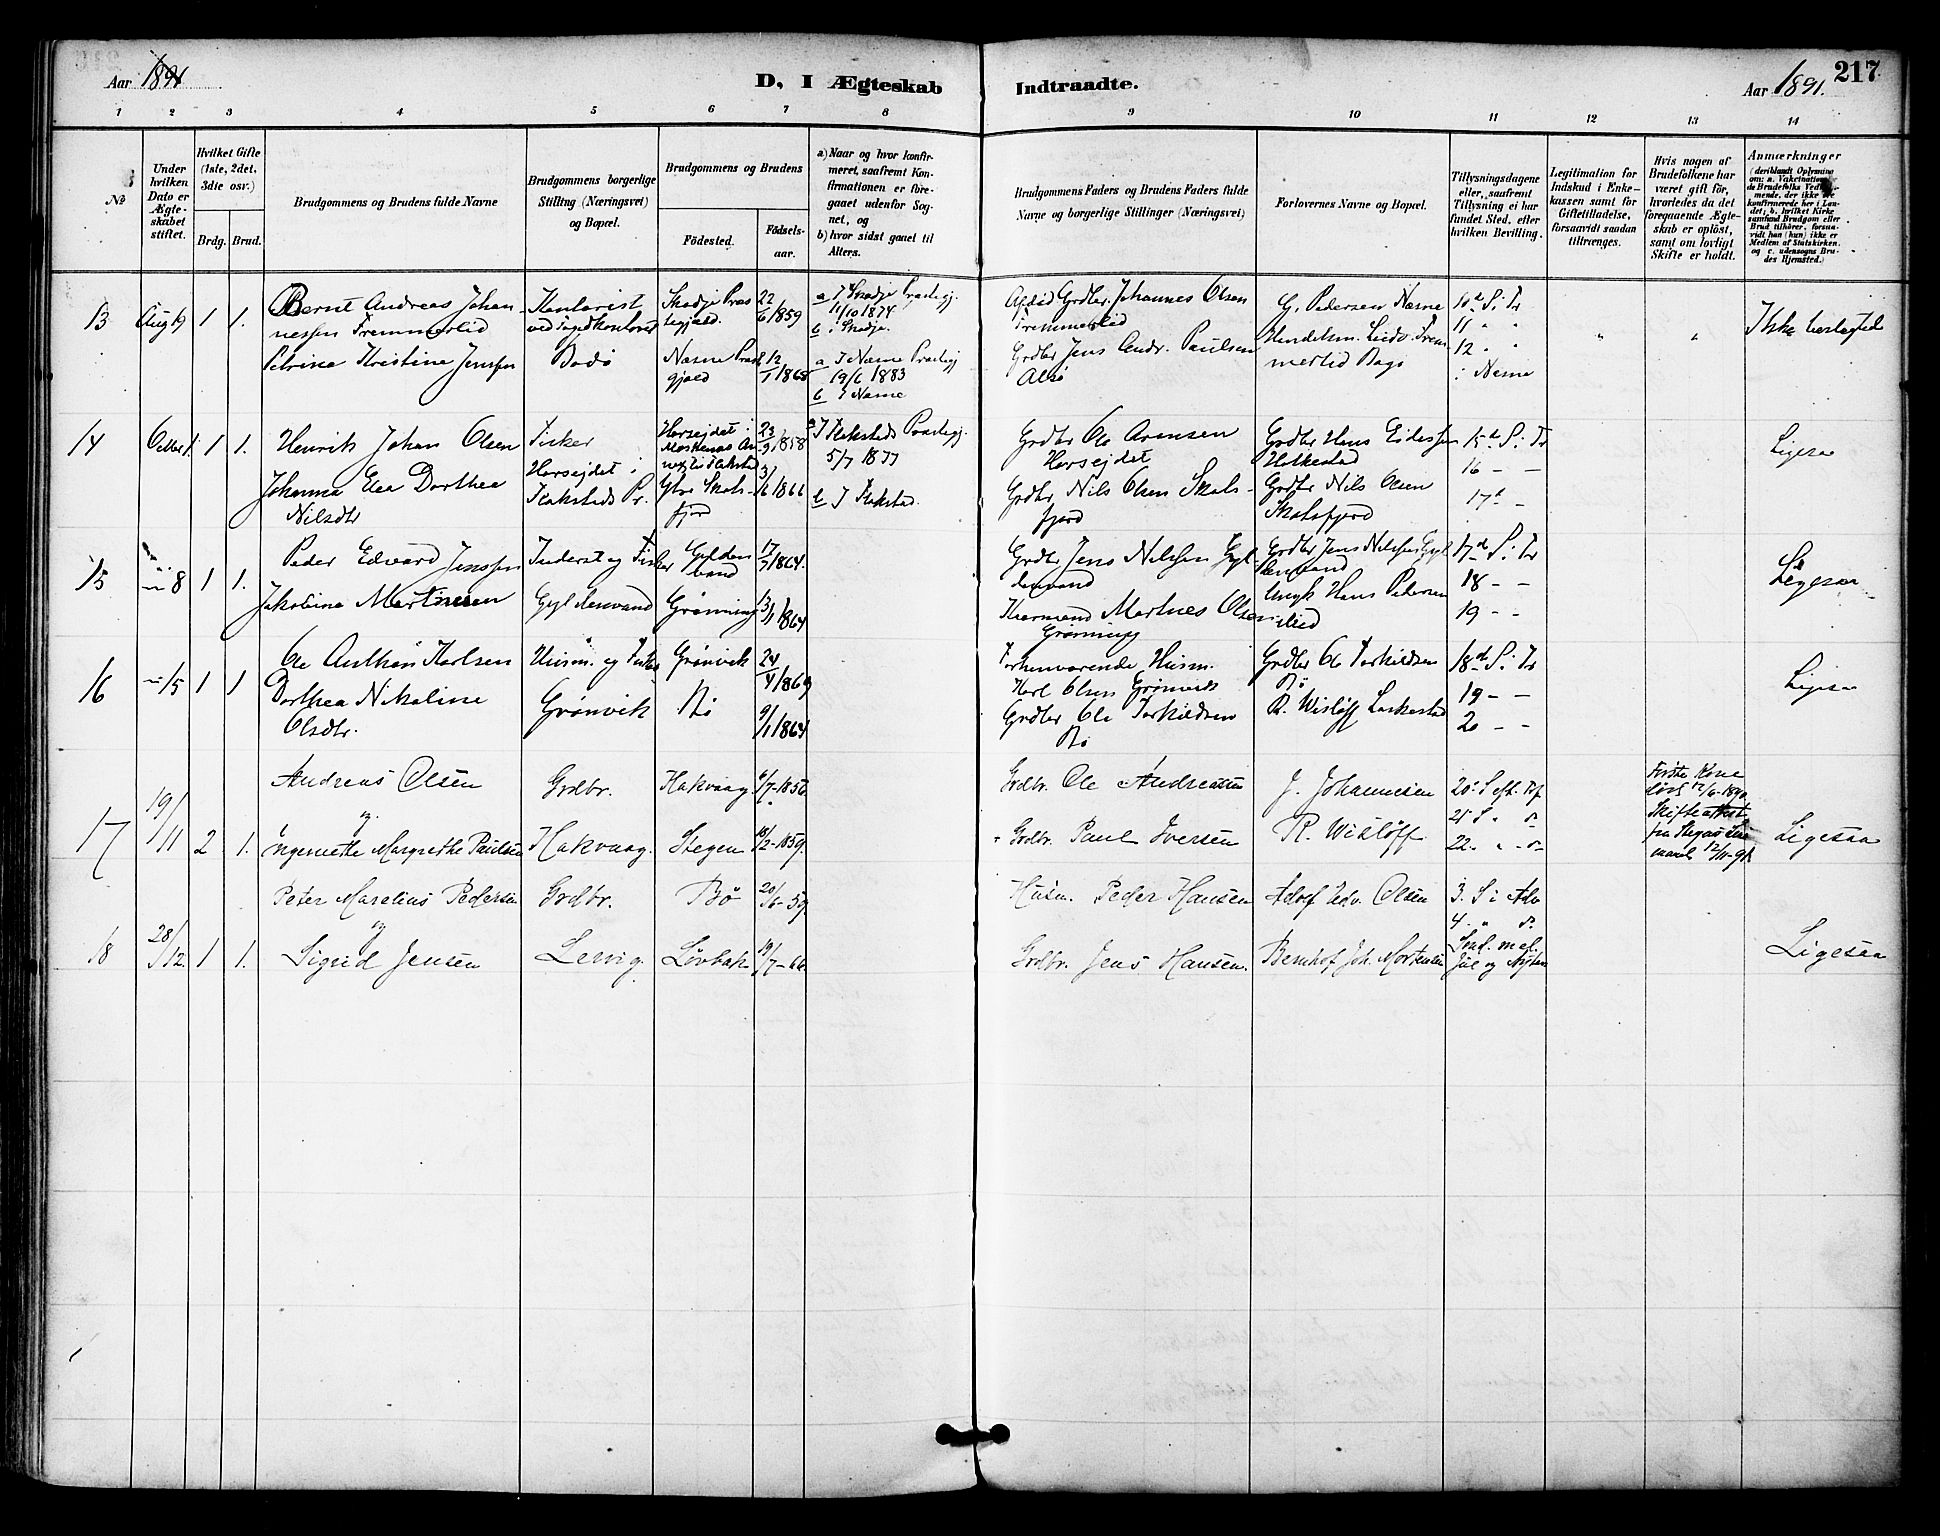 Aar 1891
D, I Ægteskab Indtraadte.
Aar 1891.
217
1 2 3 4 5 6 7 8 9 10 11 12 13 14
№
Under hvilken Dato er Ægteskabet stiftet.
Hvilket Gifte (1ste, 2det, 3die osv.)
Brdg. Brud.
Brudgommens og Brudens fulde Navne
Brudgommens borgerlige Stilling (Næringsvei) og Bopæl.
Brudgommens og Brudens
Födested.
Födsels-aar.
a) Naar og hvor konfirmeret, saafremt Konfirmationen er foregaaet udenfor Sognet, og
b) hvor sidst gaaet til Alters.
Brudgommens Faders og Brudens Faders fulde Navne og borgerlige Stillinger (Næringsvei)
Forlovernes Navne og Bopæl.
Tillysningsdagene eller, saafremt Tillysning ei har fundet Sted, efter hvilken Bevilling.
Legitimation for Indskud i Enkekassen samt for Giftetilladelse, forsaavidt saadan tiltrænges.
Hvis nogen af Brudefolkene har været gift för, hvorledes da det foregaaende Ægteskab er oplöst, samt om lovligt Skifte er holdt.
Anmærkninger
13 Aug 19 1 1.
Bernt Andreas Johannessen Fremmerlid
Petrina Kristine Jenssen
Kontorist ved Fogdkontoret
Bodø
Skodje Præstegjæld.
22/6 1859
Næsne Præstgjæld
12/1 1868
a I Skodje Præstegj. 11/10 1874
b i Skodje.
a I Næsne Præstegj. 19/6 1883
b I Næsne
Grdbr. Johannes Olsen Fremmerlid
Grdbr Jens Andr. Paulsen Alsø
G. Pedersen Næsne
Handelsm. Ludv. Fremmerlid Bagø
10d S. i Tr
11 " "
12 " "
i Næsne
" "
Ikke beslægted
14 Octbr 1 1 1.
Henrik Johan Olsen
Johanna Elea Dorthea Nilsdtr
Fisker
Horsejdet i Flakstads Pr.
Horsejdet i Moskenæs Annex til Flakstad
23/9 1858
Ytre Skotsfjord
3/6 1866
a I Flakstads Præstegj. 5/7 1877
b I Flakstad.
Grdbr Ole Arensen Horsejdet
Grdbr Nils Olsen Skotsfjord
Grdbr Hans Eidessen Holkestad
Grdbr Nils Olsen Skotsfjord
15d S. i Tr
16 - -
17d -
Ligesaa
15 " 8 1 1.
Peder Edvard Jenssen
Jakobine Martinesen
Inderst og Fisker
Gyldenvand
Gyldenvand
17/7 1864.
Grønning
13/1 1864
Grdbr Jens Nilssen Gyldenvand
Kaarmand Martines Olsen Grønning
Grdbr Jens Nilssen Gyldenvand
Ungk Hans Pedersen
17d S. i Tr
18 - -
19 - -
Ligesaa
16 " 15 1 1
Ole Anthon Karlsen
Dorthea Nikoline Olsdtr.
Husm. og Fisker
Grønvik
Grønvik
24/4 1869
Bø
9/1 1864
Forhenværende Husm. Karl Olsen Grønvik
Grdbr Ole Torkildsen Bø
Grdbr Ole Torkildsen Bø
R. Wisløff Laskestad
18d S. i Tr
19 - -
20 - -
Ligesaa
17 19/11 2 1.
Andreas Olsen
og
Ingerette Margrethe Paulsen
Grdbr.
Hakvaag.
Hakvaag
6/7-1850
Stegen
18/2-1859.
Grdbr. Ole Andreassen
" Grdbr. Paul Iversen
J. Johannesen
R. Wisløff
20. S. eft. Tref
21 S " do
22. " " do
Første Kone død 12/6-1890. Skifteattest fra Stegens Lensmand 12/11-91
Ligesaa
18 28/12 1 1.
Peter Marelius Pedersen
og
Sigrid Jensen
Grdbr.
Leivig
Bø
20/6-59.
Løvbak
19/7-66
Husm. Peder Hansen
Grdbr. Jens Hansen.
Adolf Edv. Olsen
Bernhof Joh. Mortensen
3. S i Adv
4. " do
Sønd. mel. Jul og Nytaar
Ligesaa